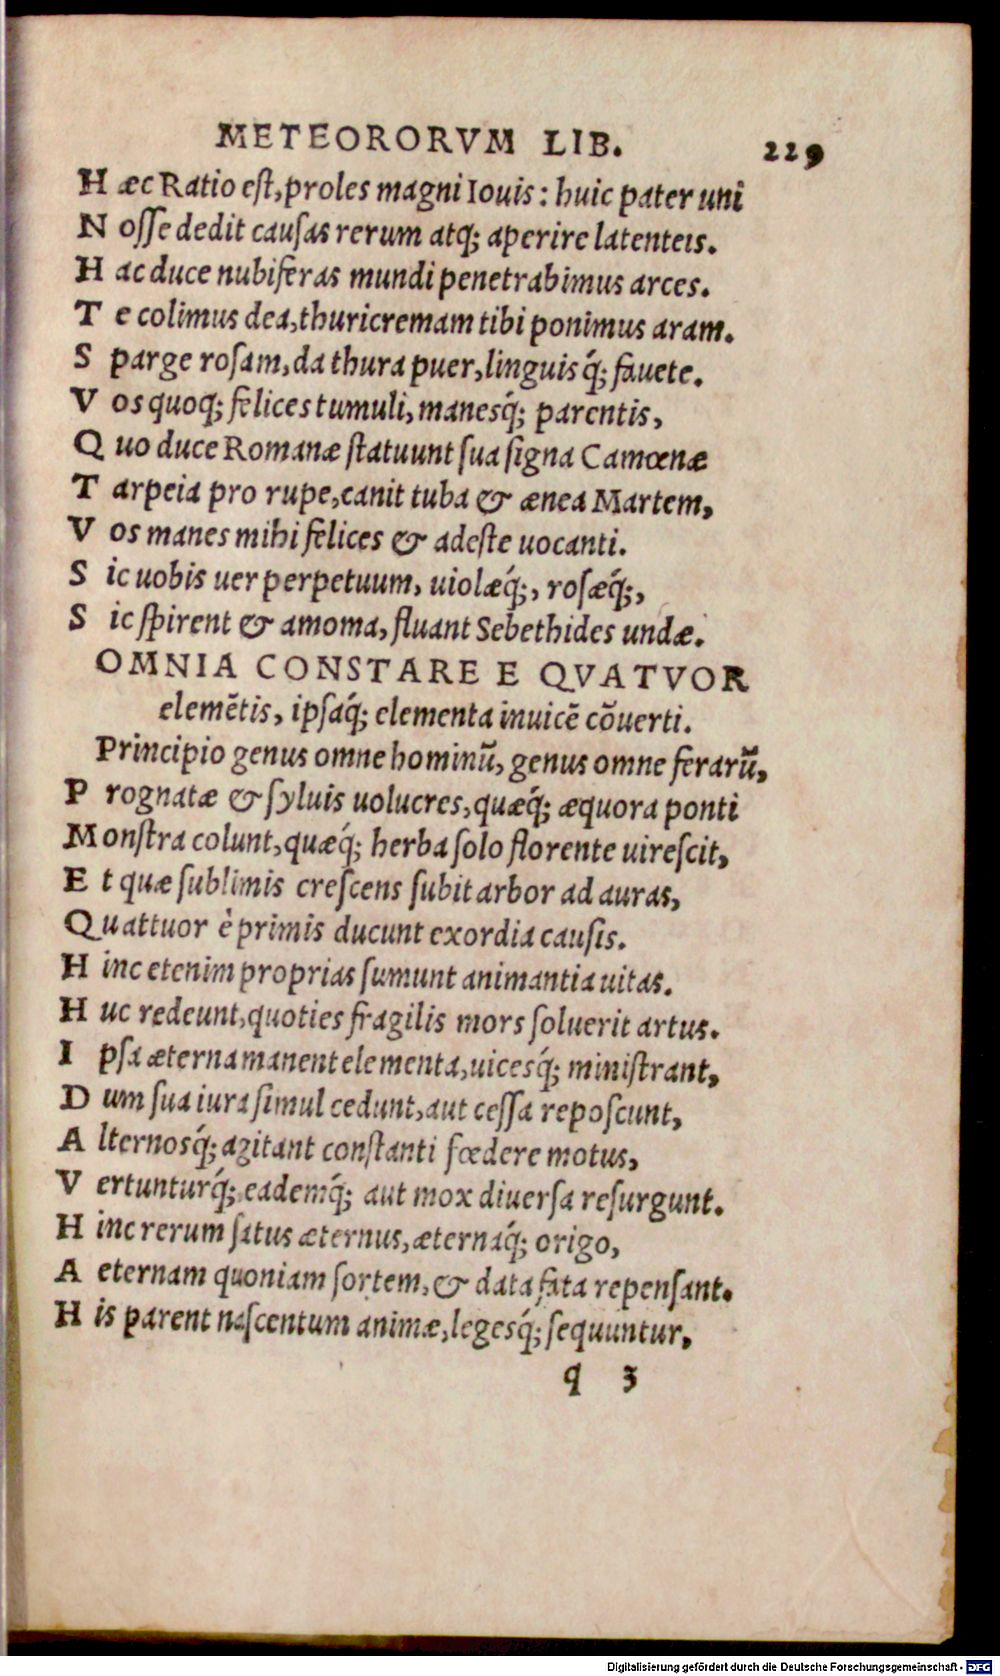 METEORORVM LIB. 229
H æc Ratio eſt, proles magni Iouis: huic pater uni
N oſſe dedit cauſas rerum atq; aperire latenteis.
H ac duce nubiferas mundi penetrabimus arces.
T e colimus dea, thuricremam tibi ponimus aram.
S parge roſam, da thura puer, linguisq́; fauete.
V os quoq; felices tumuli, manesq́; parentis,
Q uo duce Romanæ ſtatuunt ſua ſigna Camœnæ
T arpeia pro rupe, canit tuba & ænea Martem,
V os manes mihi felices & adeſte uocanti.
S ic uobis uer perpetuum, uiolæq́;, roſæq́;,
S ic ſpirent & amoma, fluant Sebethides undæ.
OMNIA CONSTARE E QVATVOR
elemẽtis, ipſaq́; elementa inuicẽ cõuerti.
Principio genus omne hominũ, genus omne ferarũ,
P rognatæ & ſyluis uolucres, quæq́; æquora ponti
M onſtra colunt, quæq́; herba ſolo florente uireſcit,
E t quæ ſublimis creſcens ſubit arbor ad auras,
Quattuor è primis ducunt exordia cauſis.
H inc etenim proprias ſumunt animantia uitas.
H uc redeunt, quoties fragilis mors ſoluerit artus.
I pſa æterna manent elementa, uicesq́; miniſtrant,
D um ſua iura ſimul cedunt, aut ceſſa repoſcunt,
A lternosq́; agitant conſtanti fœdere motus,
V ertunturq́; eademq́; aut mox diuerſa reſurgunt.
H inc rerum ſatus æternus, æternaq́; origo,
A eternam quoniam ſortem, & data fata repenſant.
H is parent naſcentum animæ, legesq́; ſequuntur,
q 3
Digitalisierung gefördert durch die Deutsche Forschungsgemeinschaft - DFG